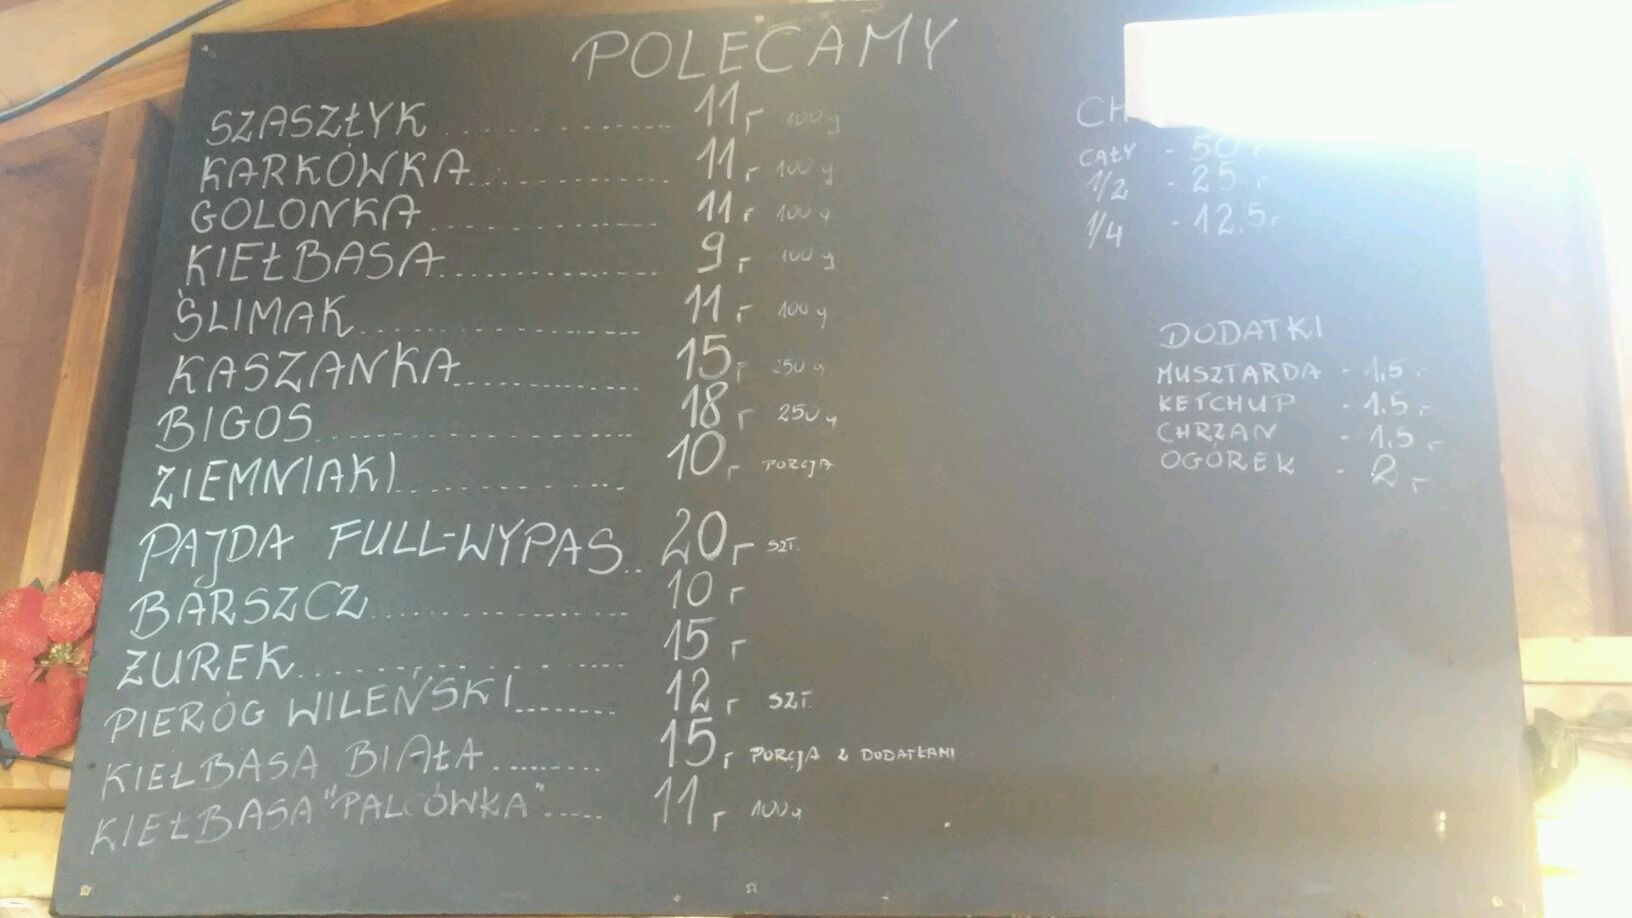 POLECAMY
SZASZŁYK ........................ 11,- 100g
KARKÓWKA ........................ 11,- 100g
GOLONKA ........................ 11,- 100g
KIEŁBASA ........................ 9,- 100g
ŚLIMAK ........................ 11,- 100g
KASZANKA ........................ 15,- 250g
BIGOS ........................ 18,- 250g
ZIEMNIAKI ........................ 10,- PORCJA
PAJDA FULL-WYPAS .. 20,- SZT.
BARSZCZ ........................ 10,-
ŻUREK ........................ 15,-
PIERÓG WILEŃSKI ......... 12,- SZT.
KIEŁBASA BIAŁA ......... 15,- PORCJA Z DODATKAMI
KIEŁBASA "PALCÓWKA" ..... 11,- 100g
CAŁY - 50,-
1/2 - 25,-
1/4 - 12.5,-
DODATKI
MUSZTARDA - 1,5,-
KETCHUP - 1.5,-
CHRZAN - 1,5,-
OGÓREK - 2,-